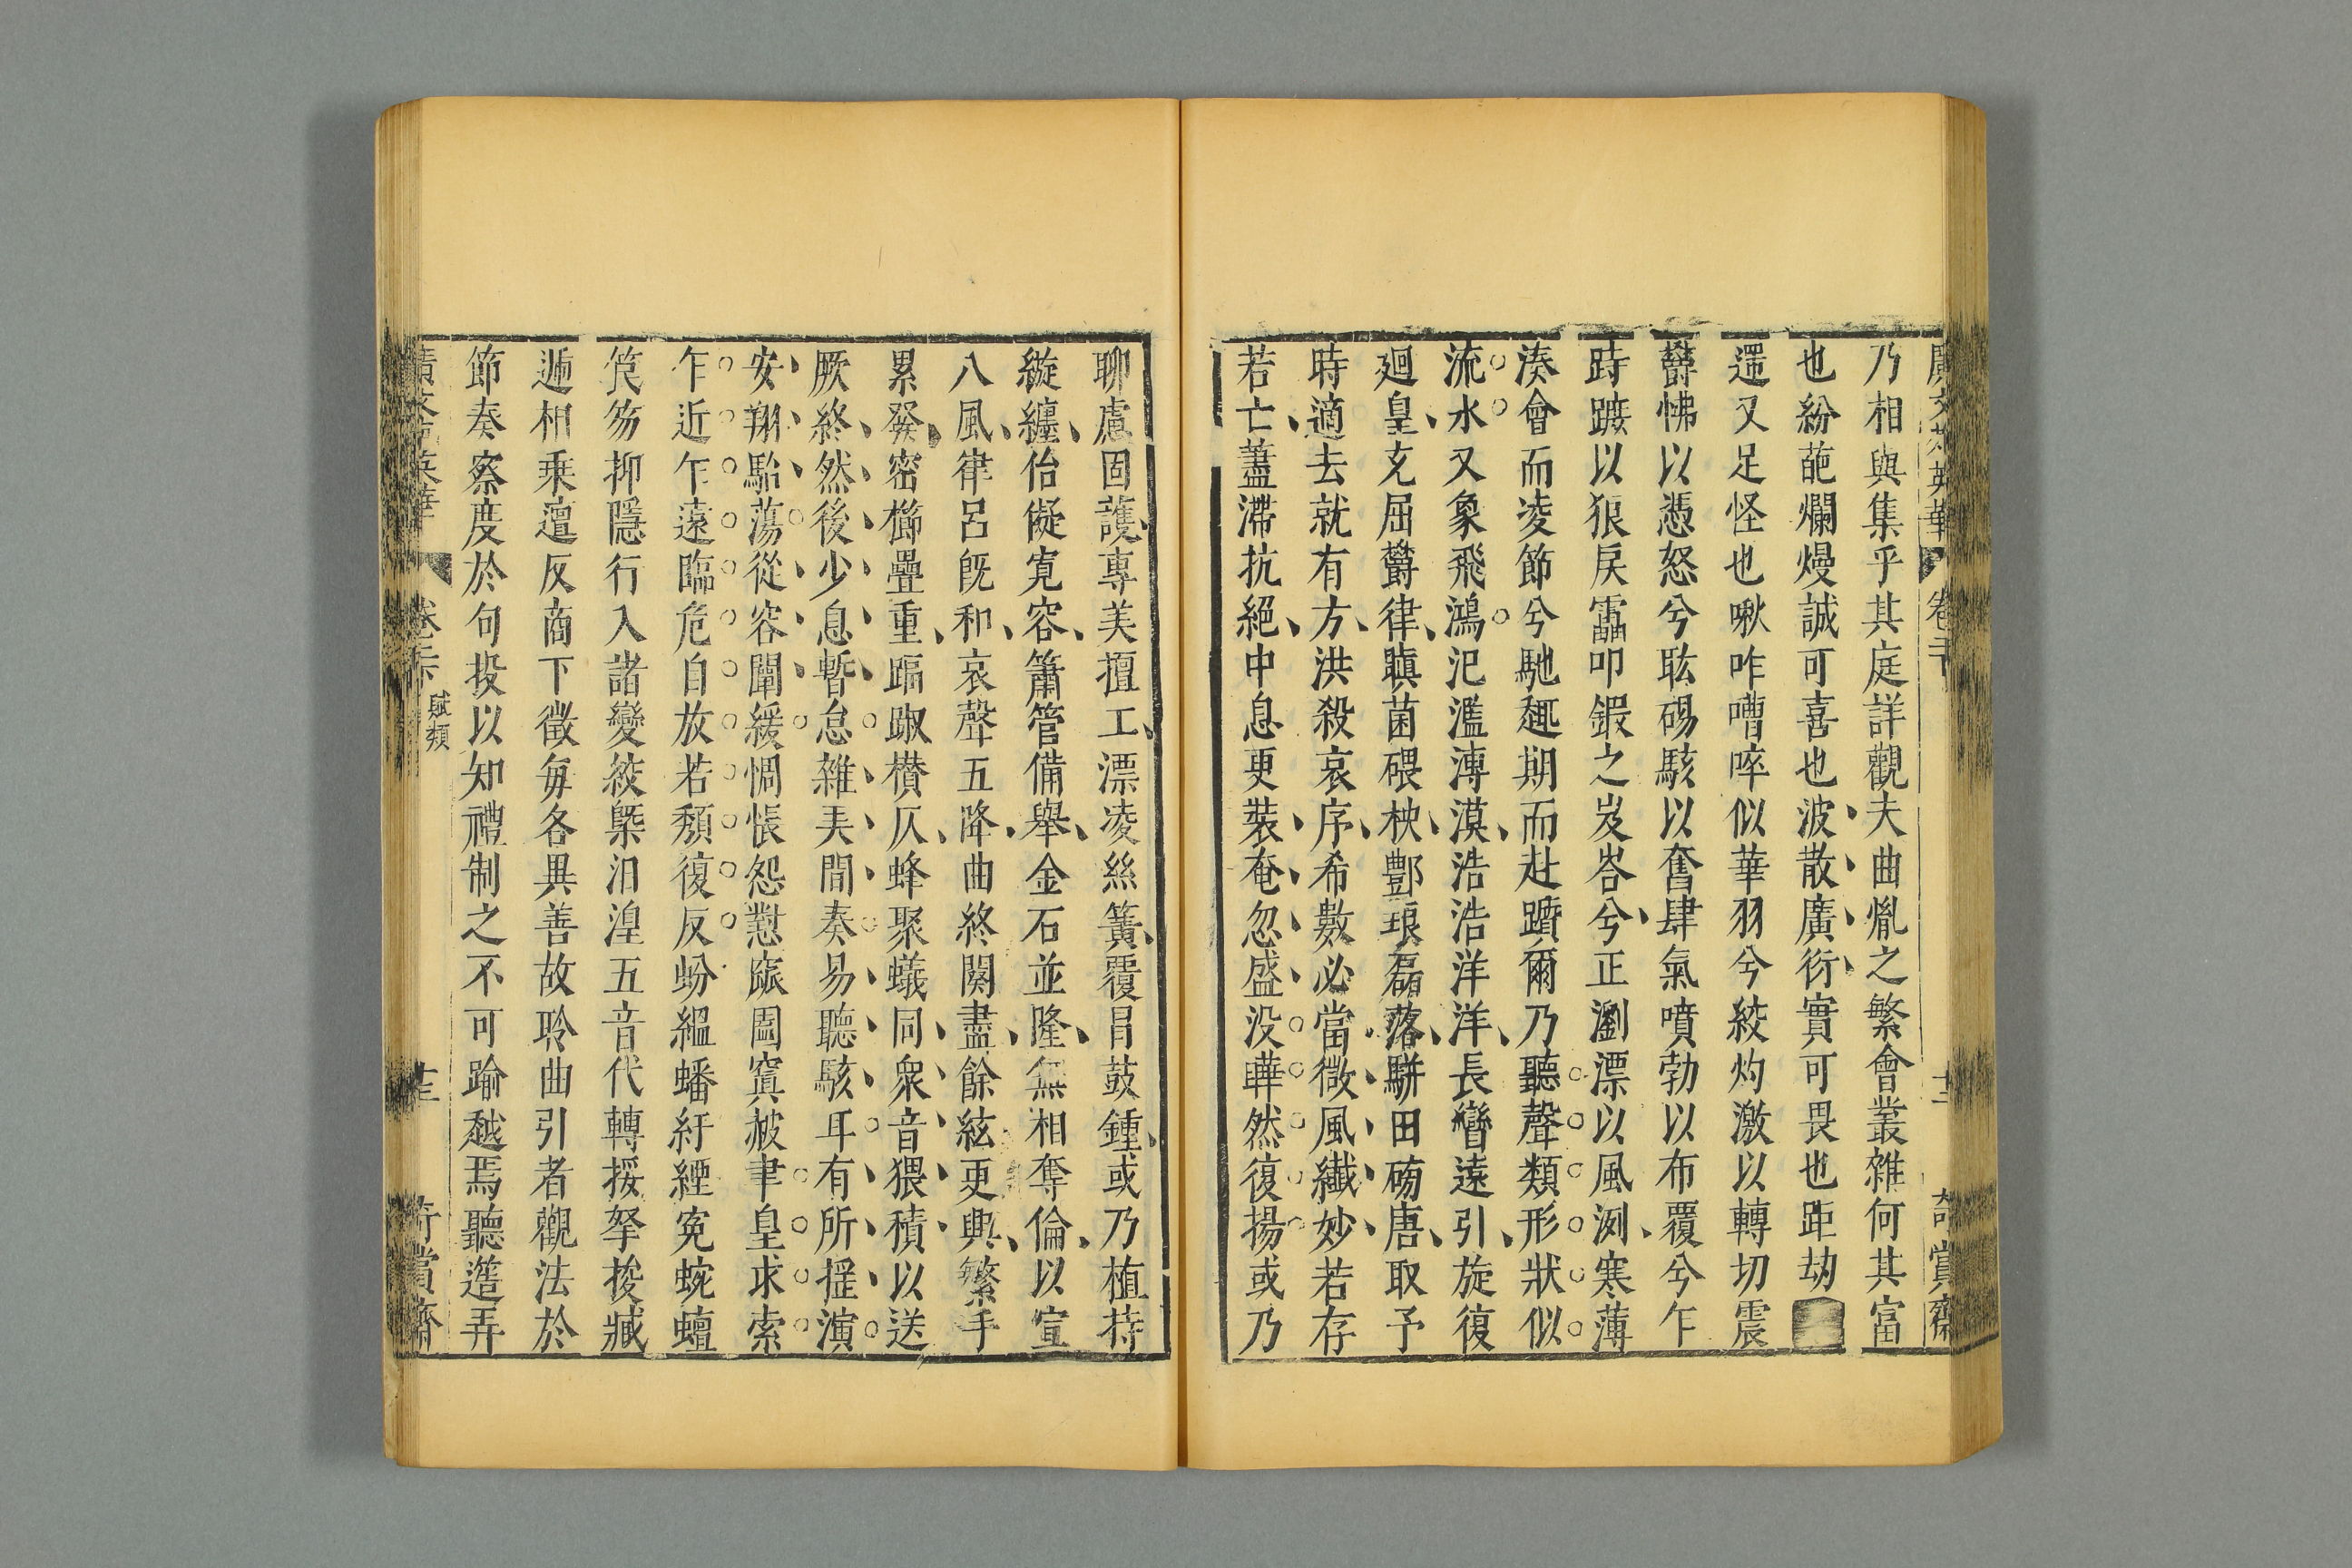 乃相與集乎其庭詳觀夫曲胤之繁會叢雜何其富
也紛葩爛熳誠可喜也波散廣衍實可畏也距劫
遻又足怪也啾咋嘈啐似華羽兮絞灼激以轉切震
鬱怫以憑怒兮耾碭駭以奮肆氣噴勃以布覆兮乍
跱蹠以狼戾靁叩鍜之岌峇兮正瀏漂以風冽寒薄
湊會而凌節兮馳趣期而赴躓爾乃聽聲類形狀似
流水又象飛鴻汜濫溥漠浩浩洋洋長矕遠引旋復
廻皇充屈鬱律瞋菌碨柍酆琅磊落駢田磅唐取予
時適去就有方洪殺哀序希數必當微風纎妙若存
若亡藎滯抗絕中息更裝奄忽盛没曄然復揚或乃
聊慮固護專美擅工漂凌絲簧覆冒鼓鍾或乃植持
縱纏佁儗寛容簫管備舉金石並隆無相奪倫以宣
八風律呂旣和哀聲五降曲終闋盡餘絃更興繁手
累發密櫛疊重踾踧攅仄蜂聚蟻同衆音猥積以送
厥終然後少息暫怠雜弄間奏易聽駭耳有所揺演
安翔駘蕩從容闡緩惆悵怨懟窳圔窴赧聿皇求索
乍近乍遠臨危自放若頽復反蚡縕蟠紆緸寃蜿蟺
笢笏抑隱行入諸變絞槩汨湟五音代轉挼拏捘臧
遞相乘邅反商下徵每各異善故聆曲引者觀法於
節奏察度於句投以知禮制之不可踰越焉聽簉弄
賦類